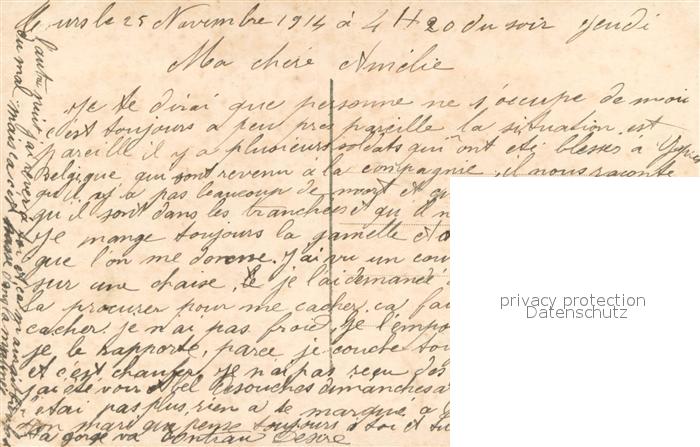 Murs le 25 Novembre 1914 à 4 H 20 du soir Jeudi
Ma chère Amélie
Je te dirai que personne ne s'occupe de moi
c'est toujours a peu pres pareille la situation est
pareille il y a plusieurs soldats qui ont eté blesses a Ypres
Belgique qui sont revenu à la compagnie, il nous raconte
qu'il n'y a pas beaucoup de mort et
qu'il sont dans les tranchées et qu'il n
Je mange toujours la gamelle et
que l'on me donne. J'ai vu un cou
sur une chaise, je l'ai demandé
la procurer pour me cacher. ca fai
cacher. je n'ai pas froid, Je l'empo
je le rapporte, parce je couche tou
et c'est chauffer. Je n'ai pas reçu des
j'ai été voir Abel Desouches dimanche a
J'etai pas plus rien a te marqué a
ton mari qui pense toujours à toi et
La gorge va Contrau Desire
privacy protection
Datenschutz
l'autre nuit j'ai rever à toi et ca
du mal mais ca c'est passé dans la matinée